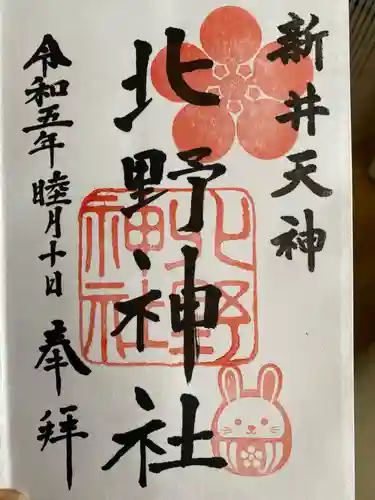 新井天神
北野神社
北野
神社
令和五年睦月十日
奉拝